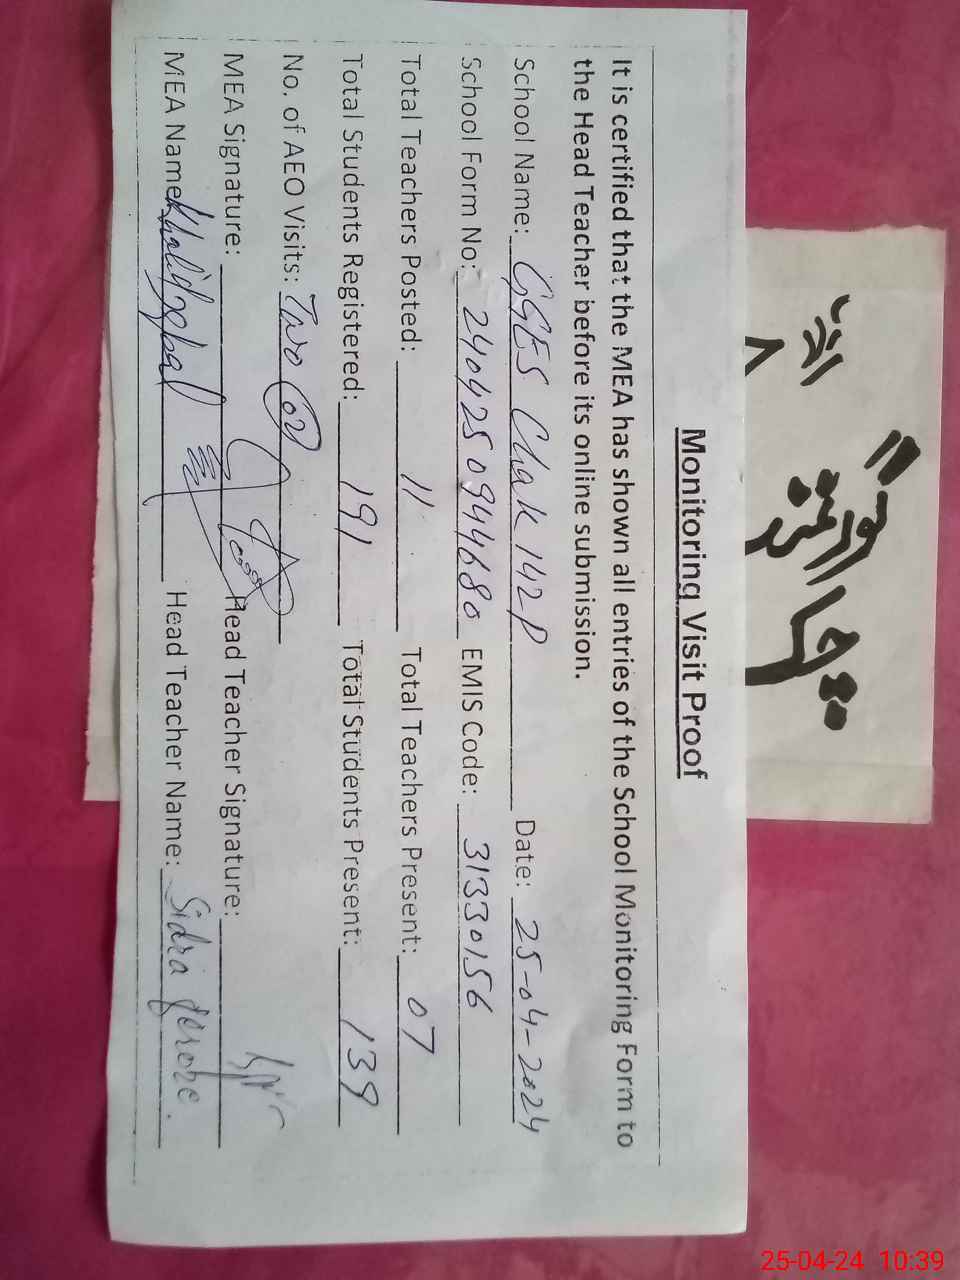 Monitoring Visit Proof
It is certified that the MEA has shown all entries of the School Monitoring Form to
the Head Teacher before its online submission.
School Name: GGES Chak 142P Date: 25-04-2024
School Form No: 2404250944680 EMIS Code: 31330156
Total Teachers Posted: 11 Total Teachers Present: 07
Total Students Registered: 191 Total Students Present: 139
No. of AEO Visits: Two 02
MEA Signature: Head Teacher Signature:
MEA Name: Khalid Iqbal Head Teacher Name: Sidra
25-04-24 10:39